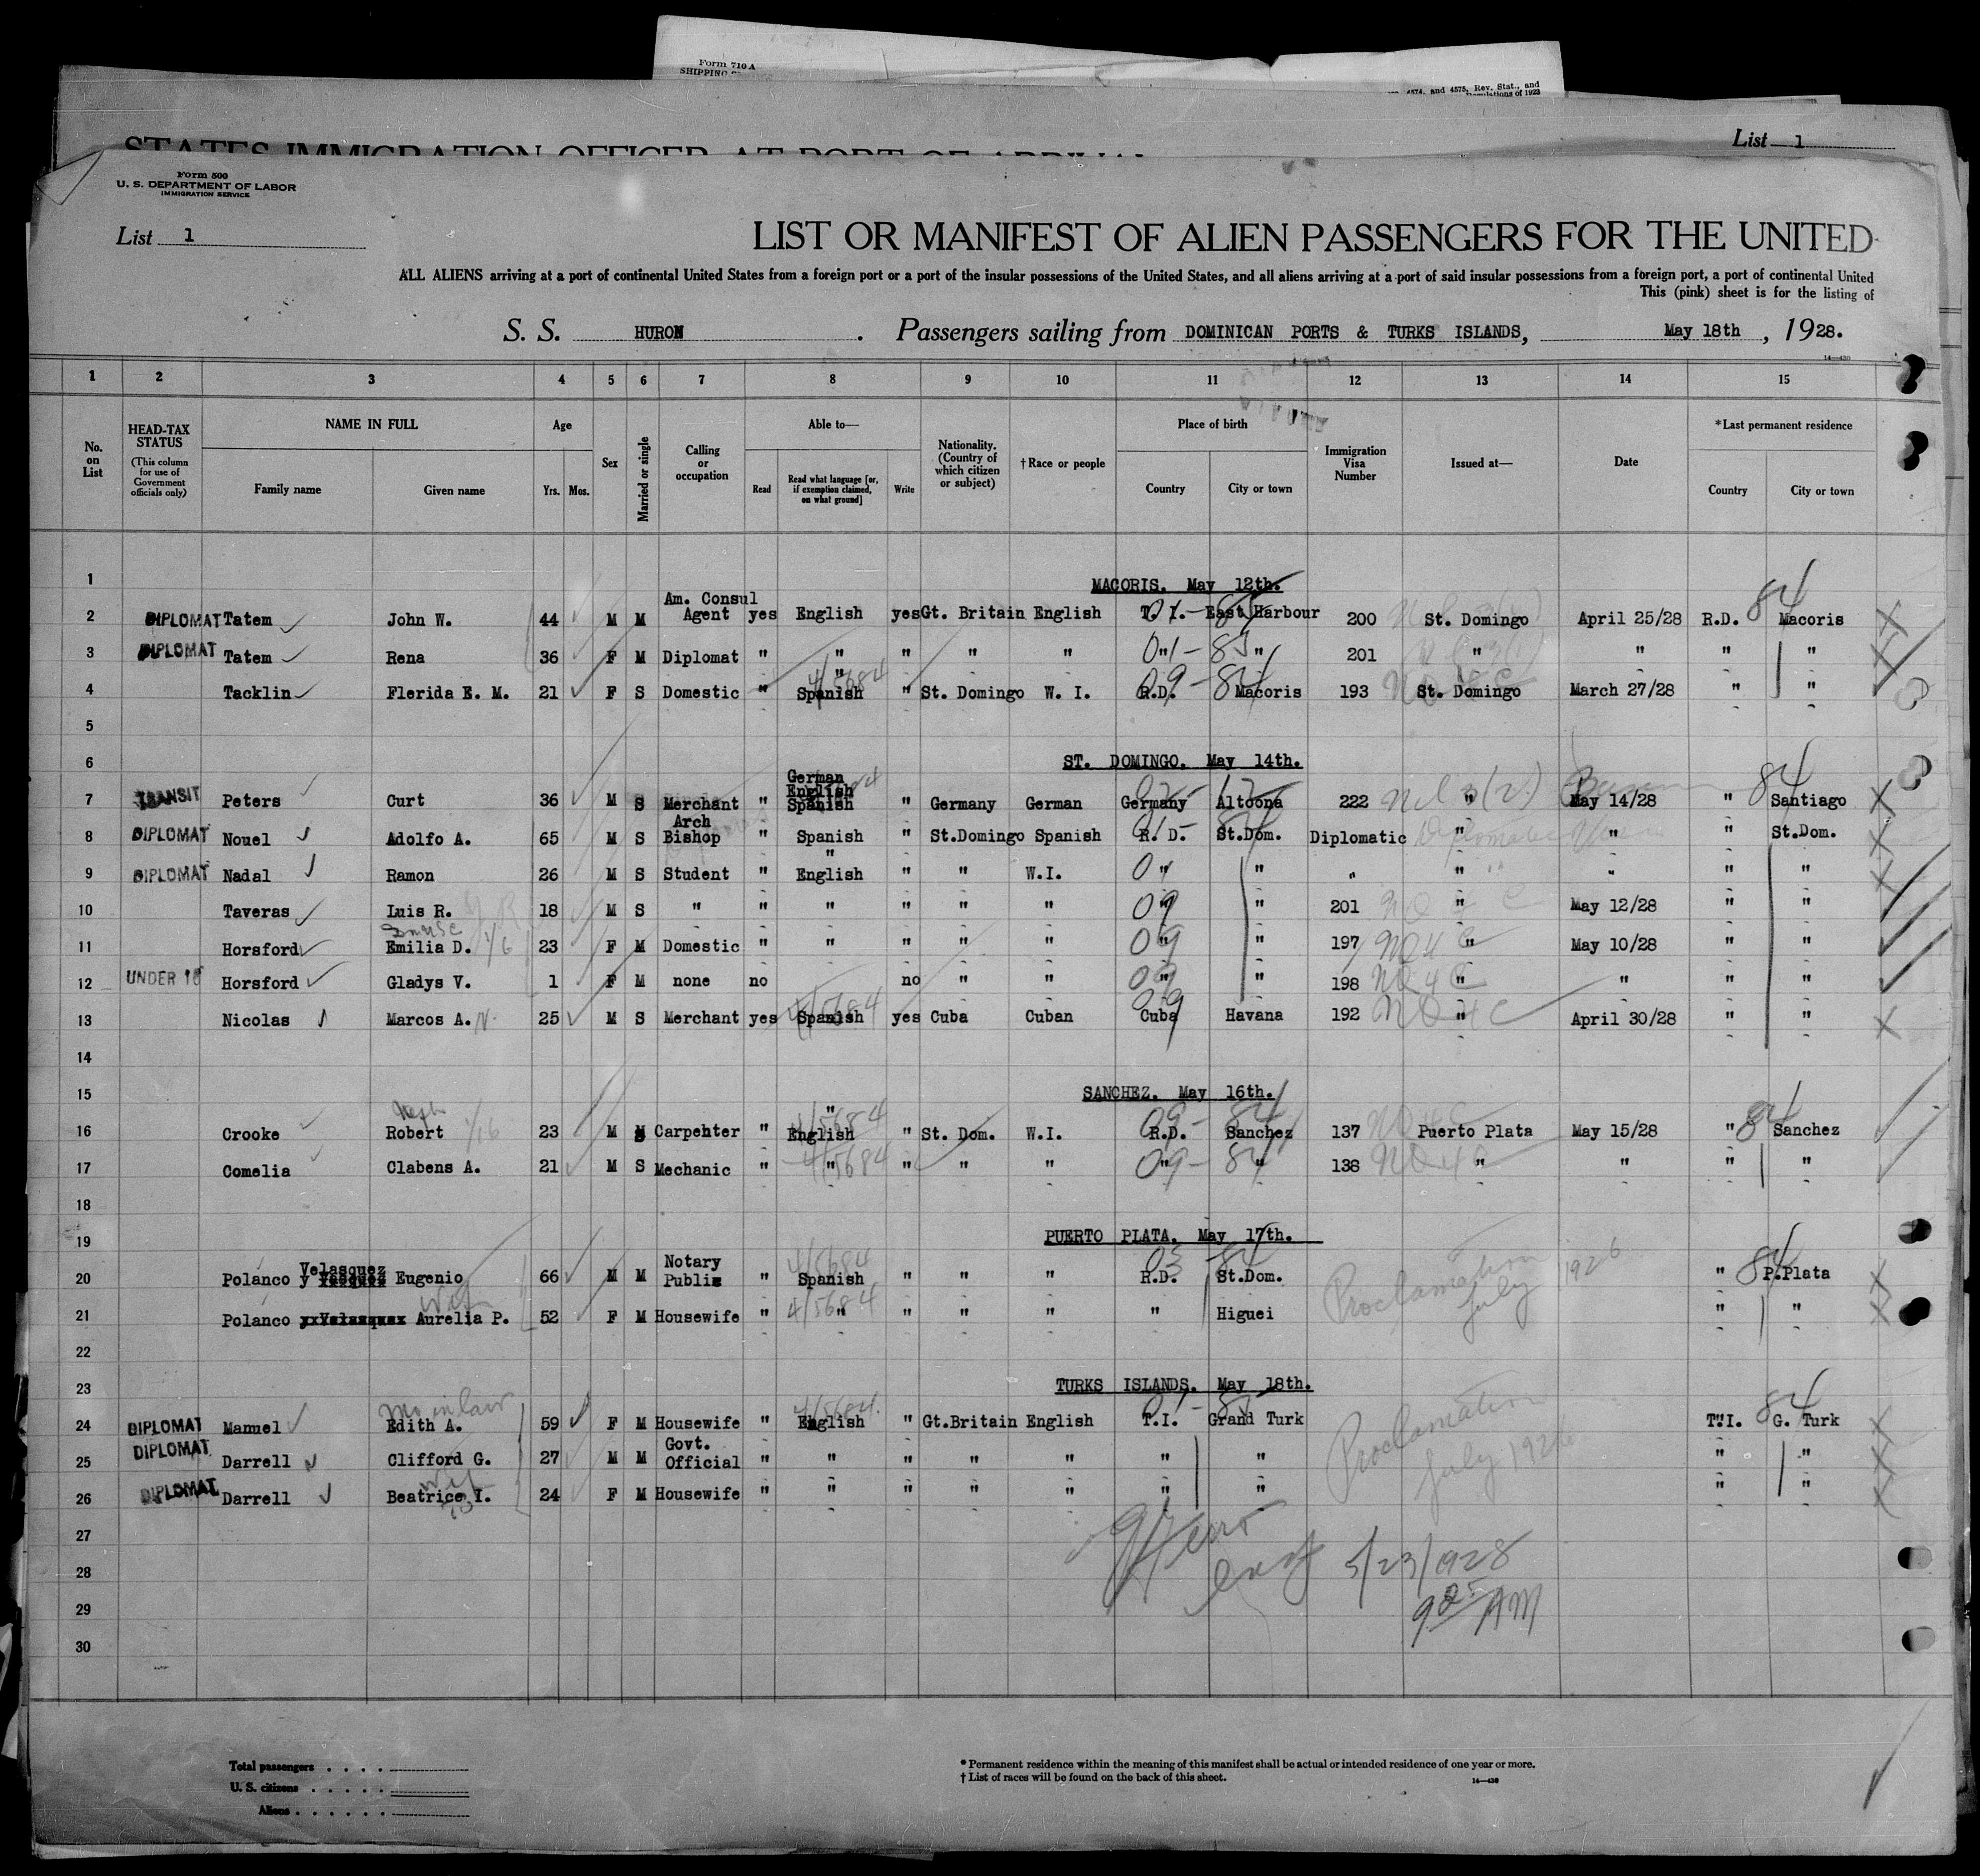 Form 710 A
SHIPPING
4574, and 4575, Rev. Stat., and
Regulations of 1923
STATES IMMIGRATION OFFICER AT PORT OF ARRIVAL
List 1
Form 500
U. S. DEPARTMENT OF LABOR
IMMIGRATION SERVICE
List 1
LIST OR MANIFEST OF ALIEN PASSENGERS FOR THE UNITED
ALL ALIENS arriving at a port of continental United States from a foreign port or a port of the insular possessions of the United States, and all aliens arriving at a port of said insular possessions from a foreign port, a port of continental United
This (pink) sheet is for the listing of
S. S. HURON. Passengers sailing from DOMINICAN PORTS & TURKS ISLANDS, May 18th, 1928.
14—430
1 2 3 4 5 6 7 8 9 10 11 12 13 14 15
No. on List
HEAD-TAX STATUS (This column for use of Government officials only)
NAME IN FULL
Family name Given name
Age
Yrs. Mos.
Sex
Married or single
Calling or occupation
Able to—
Read Read what language [or, if exemption claimed, on what ground] Write
Nationality. (Country of which citizen or subject)
† Race or people
Place of birth
Country City or town
Immigration Visa Number
Issued at—
Date
*Last permanent residence
Country City or town
1 MACORIS. May 12th. 84
2 DIPLOMAT Tatem John W. 44 M M Am. Consul Agent yes English yes Gt. Britain English T. I. East Harbour 200 St. Domingo April 25/28 R.D. Macoris
3 DIPLOMAT Tatem Rena 36 F M Diplomat " " " " " " " 201 " " " "
4 Tacklin Flerida E. M. 21 F S Domestic " " Spanish " St. Domingo W. I. R.D. Macoris 193 St. Domingo March 27/28 " "
5
6 ST. DOMINGO. May 14th. 84
7 TRANSIT Peters Curt 36 M S Merchant " German English Spanish " Germany German Germany Altoona 222 " May 14/28 " Santiago
8 DIPLOMAT Nouel Adolfo A. 65 M S Arch Bishop " Spanish " St.Domingo Spanish R. D. St.Dom. Diplomatic " " " St.Dom.
9 DIPLOMAT Nadal Ramon 26 M S Student " " English " " W.I. " " " " " " "
10 Taveras Luis R. 18 M S " " " " " " " " 201 " May 12/28 " "
11 Horsford Emilia D. 23 F M Domestic " " " " " " " 197 " May 10/28 " "
12 UNDER 16 Horsford Gladys V. 1 F M none no no " " " " 198 " " " "
13 Nicolas Marcos A. 25 M S Merchant yes Spanish yes Cuba Cuban Cuba Havana 192 " April 30/28 " "
14
15 SANCHEZ. May 16th. 84
16 Crooke Robert 23 M S Carpenter " " English " St. Dom. W.I. R.D. Sanchez 137 Puerto Plata May 15/28 " Sanchez
17 Comelia Clabens A. 21 M S Mechanic " " " " " " " 138 " " " "
18
19 PUERTO PLATA. May 17th. 84
20 Polanco y Velasquez Eugenio 66 M M Notary Public " Spanish " " " R.D. St.Dom. Proclamation July 1926 " P.Plata
21 Polanco Aurelia P. 52 F M Housewife " " " " " " Higuei " "
22
23 TURKS ISLANDS. May 18th. 84
24 DIPLOMAT Manuel Mo in law Edith A. 59 F M Housewife " English " Gt.Britain English T.I. Grand Turk Proclamation July 1926 T.I. G. Turk
25 DIPLOMAT Darrell Clifford G. 27 M M Govt. Official " " " " " " " " "
26 DIPLOMAT Darrell Beatrice I. 24 F M Housewife " " " " " " " " "
27
28 5/23/1928
29 9 25 AM
30
Total passengers
U. S. citizens
Aliens
* Permanent residence within the meaning of this manifest shall be actual or intended residence of one year or more.
† List of races will be found on the back of this sheet.
14—430